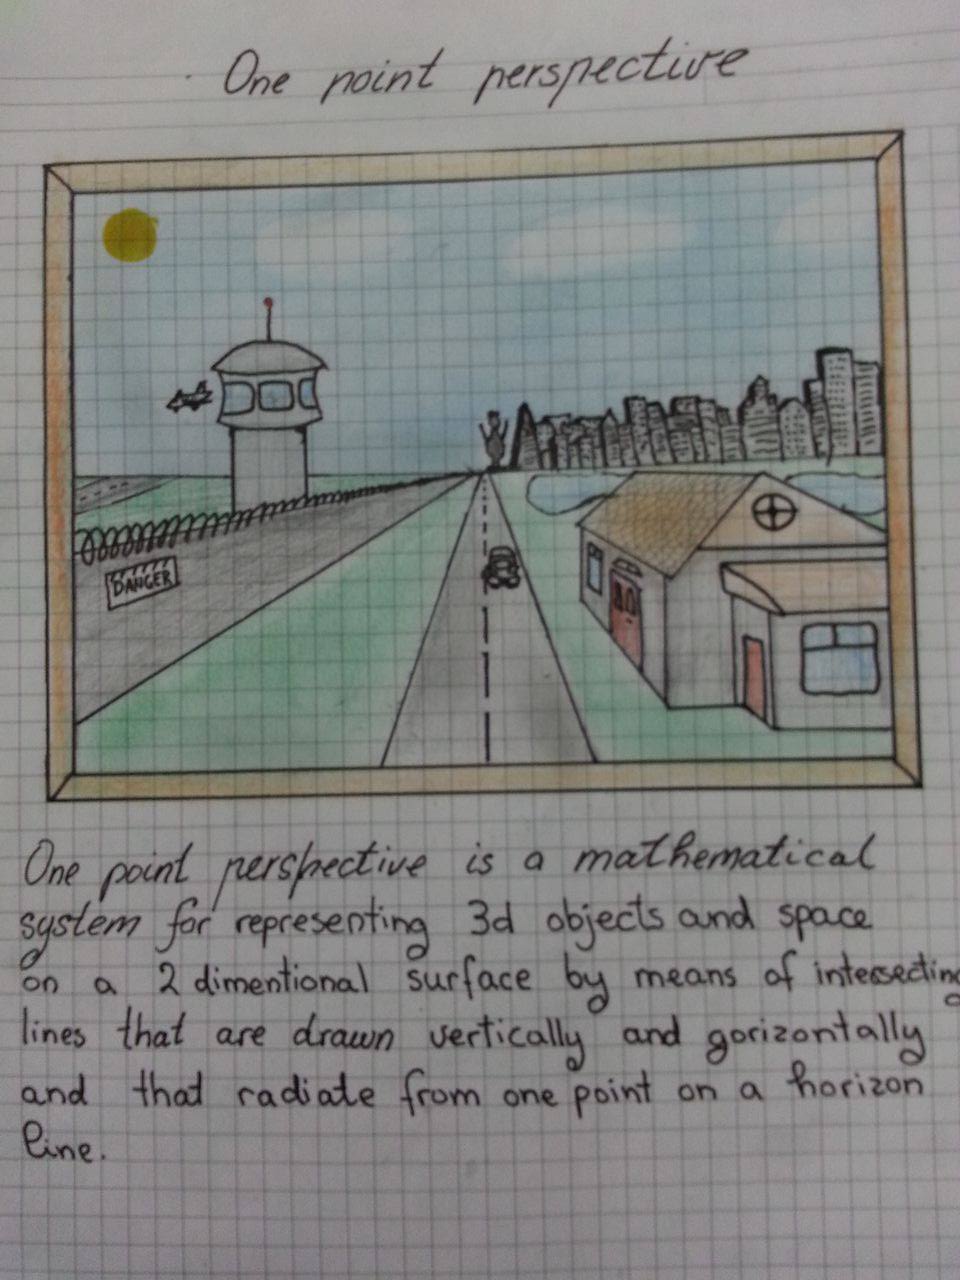 One point perspective
DANGER
One point perspective is a mathematical
system for representing 3d objects and space
on a 2 dimentional surface by means of intersecting
lines that are drawn vertically and gorizontally
and that radiate from one point on a horizon
line.